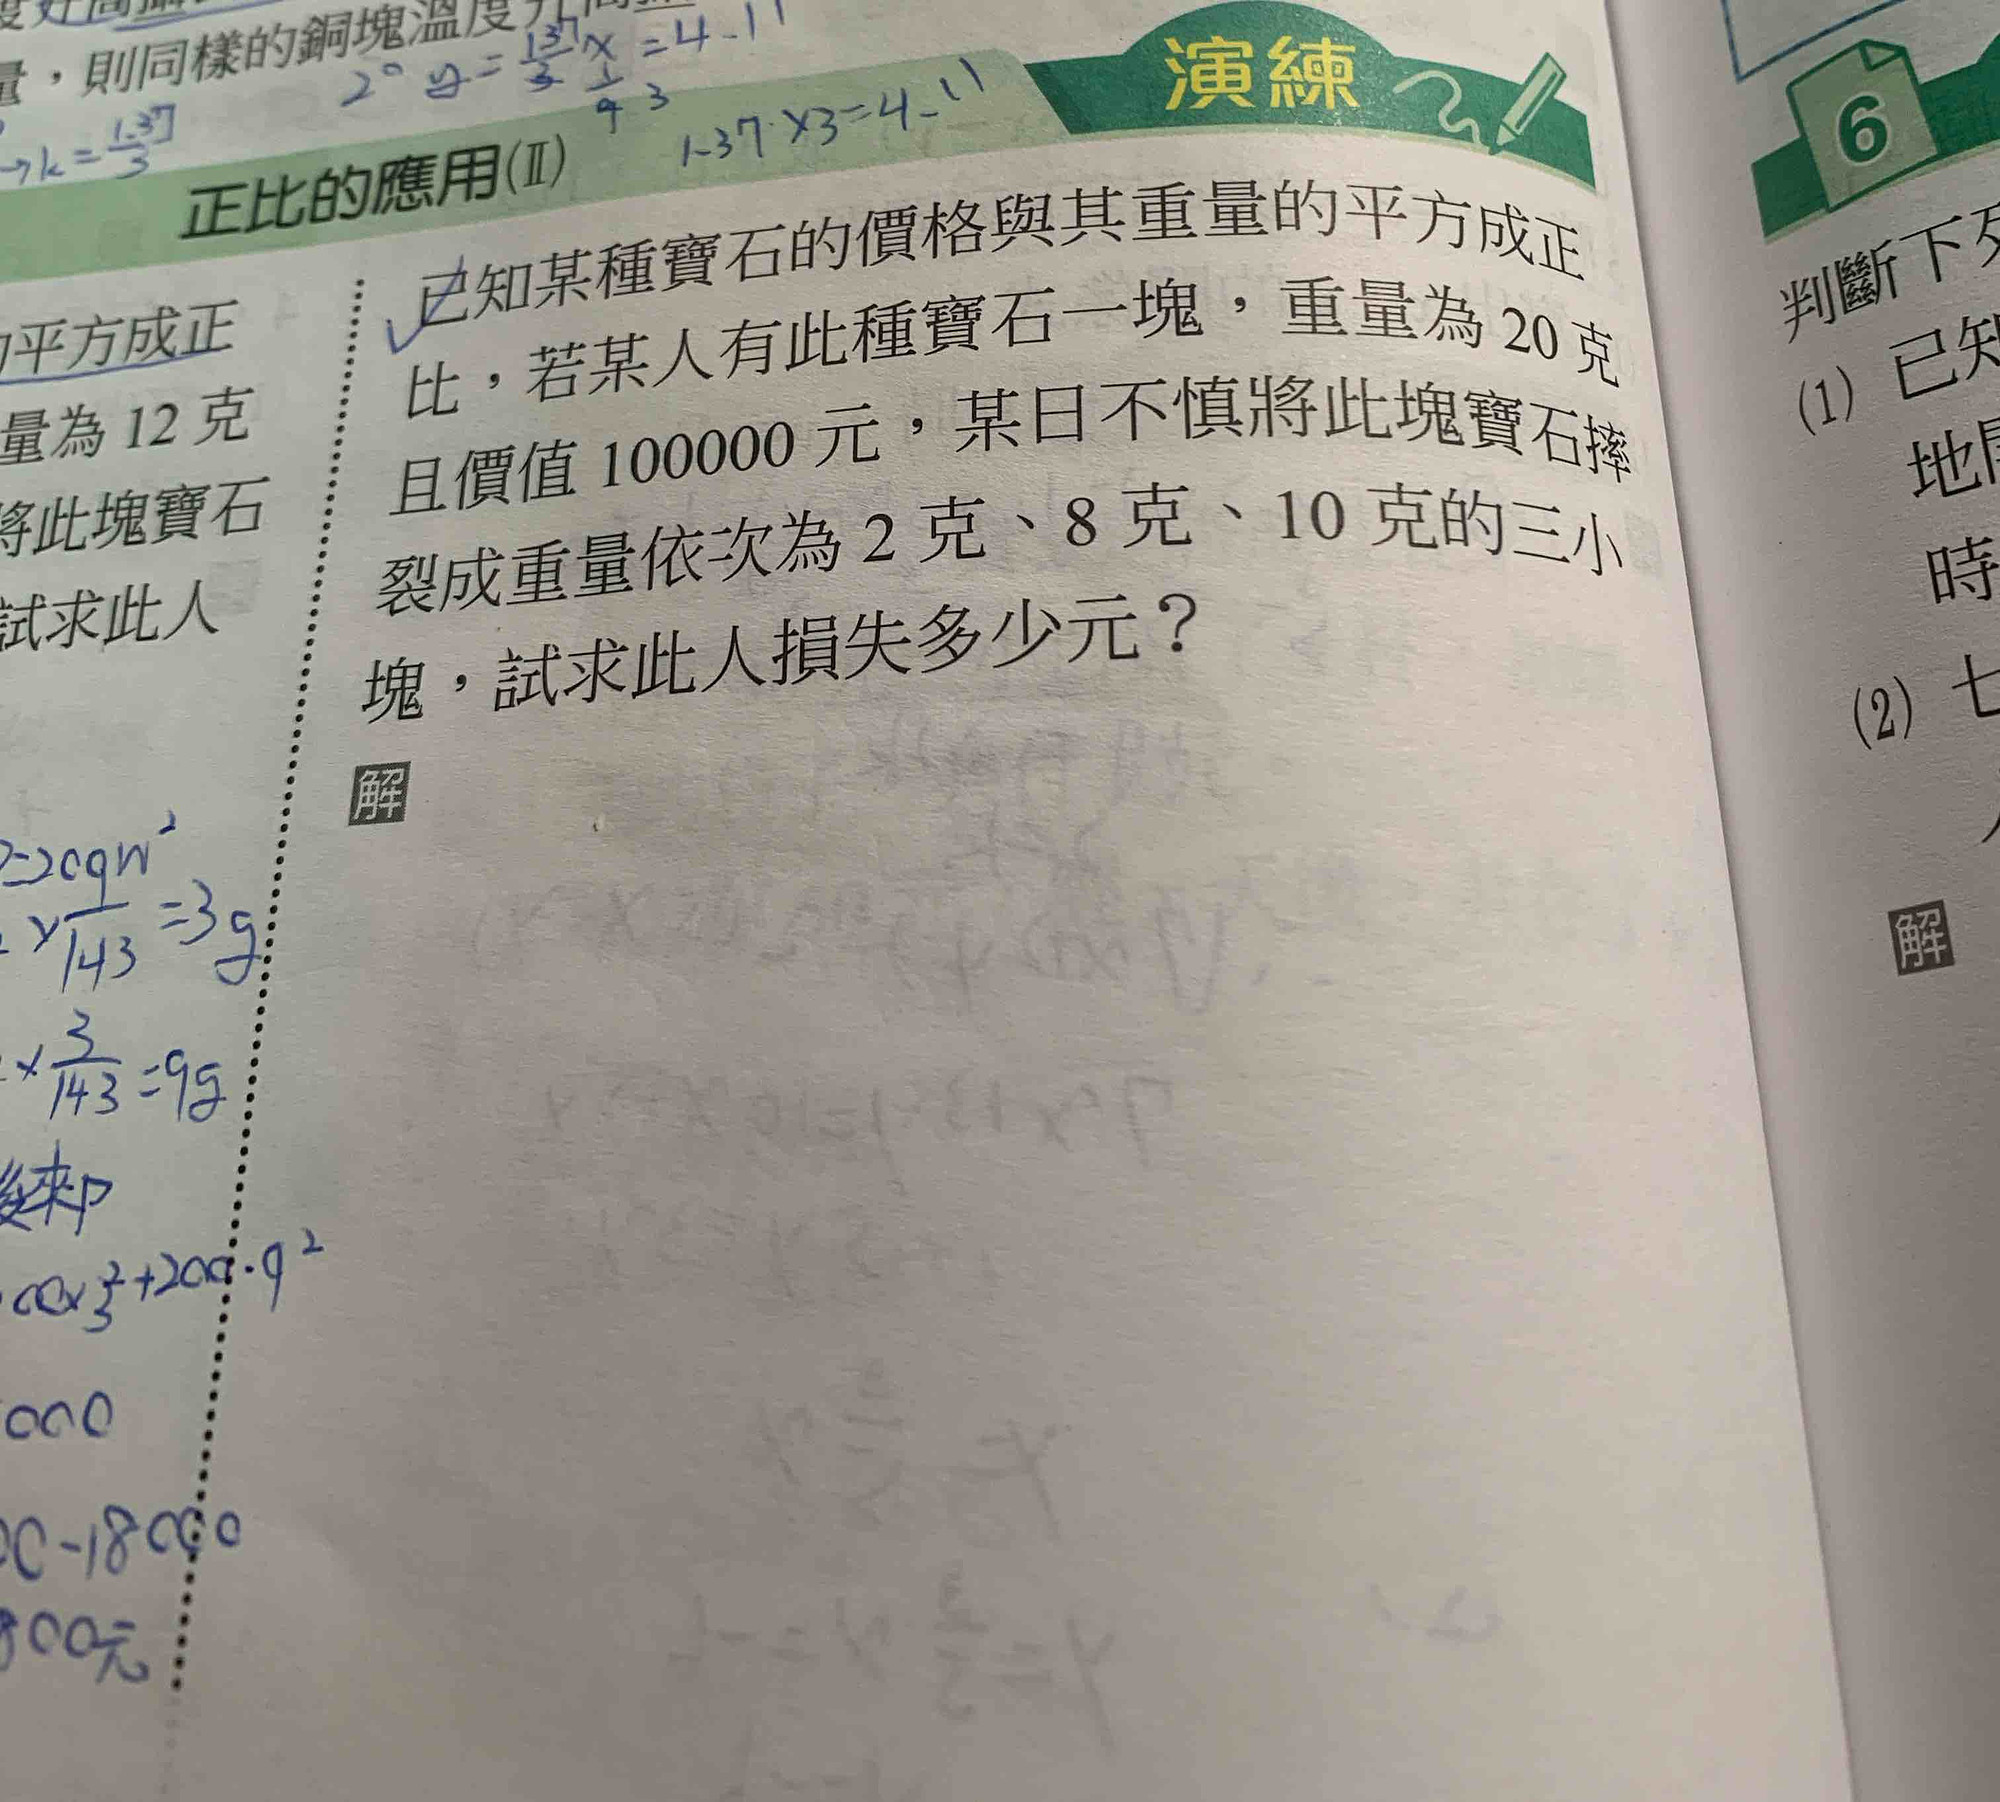 量，則同樣的銅塊溫度升高
2° y = 1.37/3 x = 4.11
→k = 1.37/3
1.37 × 3 = 4.11
演練
正比的應用(Ⅱ)
平方成正
量為 12 克
將此塊寶石
試求此人
已知某種寶石的價格與其重量的平方成正
比，若某人有此種寶石一塊，重量為 20 克
且價值 100000 元，某日不慎將此塊寶石摔
裂成重量依次為 2 克、8 克、10 克的三小
塊，試求此人損失多少元？
解
× 1/143 = 3g
× 3/143 = 9g
後來
000
-18000
800元
6
判斷下列
(1) 已知
地
時
(2) 七
解